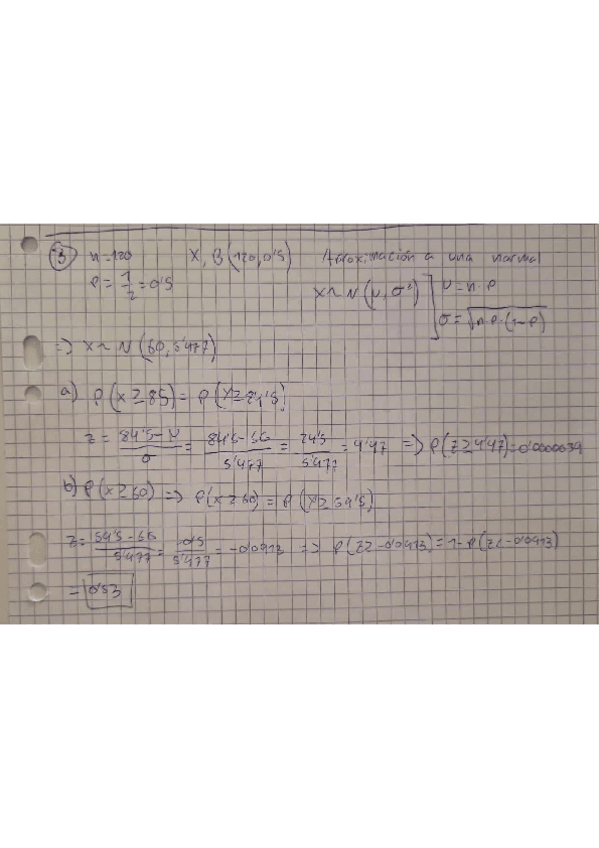 ③ n=120 X, B(120, 0'5) Aproximación a una normal
P = 1/2 = 0'5 X ~ N(μ, σ²) ] μ = n·p
σ = √n·p·(1-p)
=> X ~ N(60, 5'477)
a) P(X ≥ 85) = P(X ≥ 84'5)
z = 84'5-μ/σ = 84'5-60/5'477 = 24'5/5'477 = 4'47 => P(Z ≥ 4'47) = 0'0000039
b) P(X ≥ 60) => P(X ≥ 60) = P(X ≥ 59'5)
z = 59'5-60/5'477 = -0'5/5'477 = -0'0913 => P(Z ≥ -0'0913) = 1-P(Z < -0'0913)
= 0'53